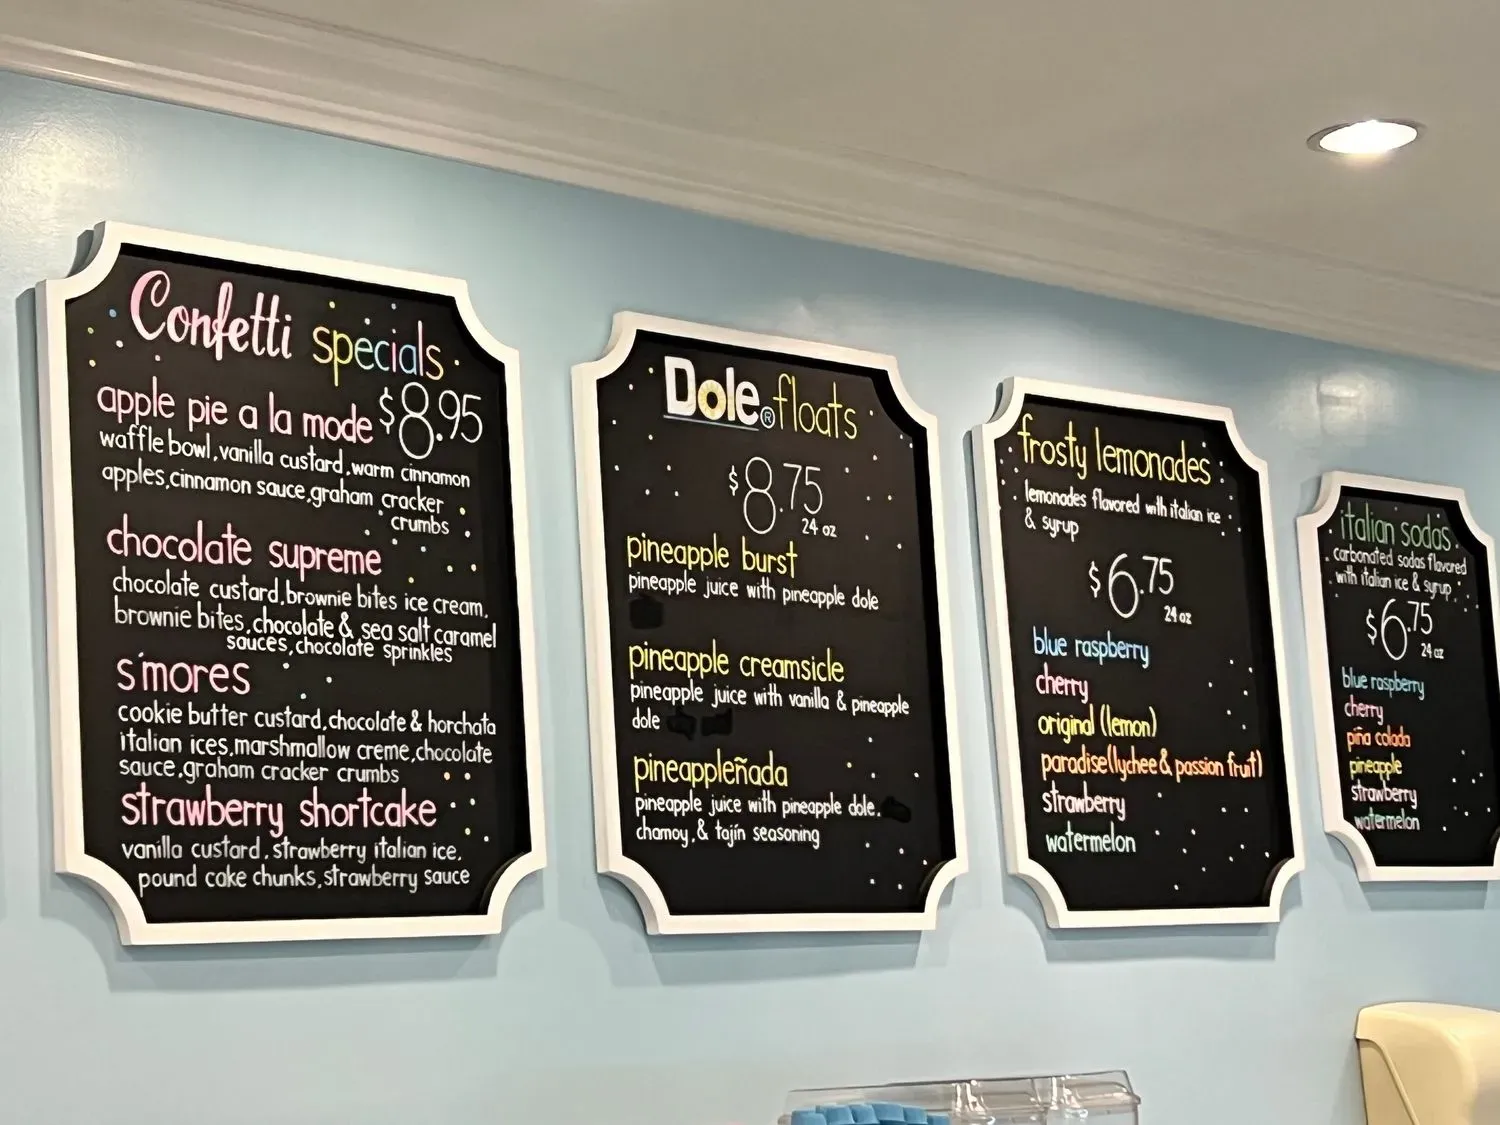 Confetti specials
apple pie a la mode $8.95
waffle bowl, vanilla custard, warm cinnamon
apples, cinnamon sauce, graham cracker
crumbs
chocolate supreme
chocolate custard, brownie bites ice cream,
brownie bites, chocolate & sea salt caramel
sauces, chocolate sprinkles
s'mores
cookie butter custard, chocolate & horchata
italian ices, marshmallow creme, chocolate
sauce, graham cracker crumbs
strawberry shortcake
vanilla custard, strawberry italian ice,
pound cake chunks, strawberry sauce
Dole® floats
$8.75
24 oz
pineapple burst
pineapple juice with pineapple dole
pineapple creamsicle
pineapple juice with vanilla & pineapple
dole
pineappleñada
pineapple juice with pineapple dole,
chamoy, & tajín seasoning
frosty lemonades
lemonades flavored with italian ice
& syrup
$6.75
24 oz
blue raspberry
cherry
original (lemon)
paradise (lychee & passion fruit)
strawberry
watermelon
italian sodas
carbonated sodas flavored
with italian ice & syrup
$6.75
24 oz
blue raspberry
cherry
piña colada
pineapple
strawberry
watermelon